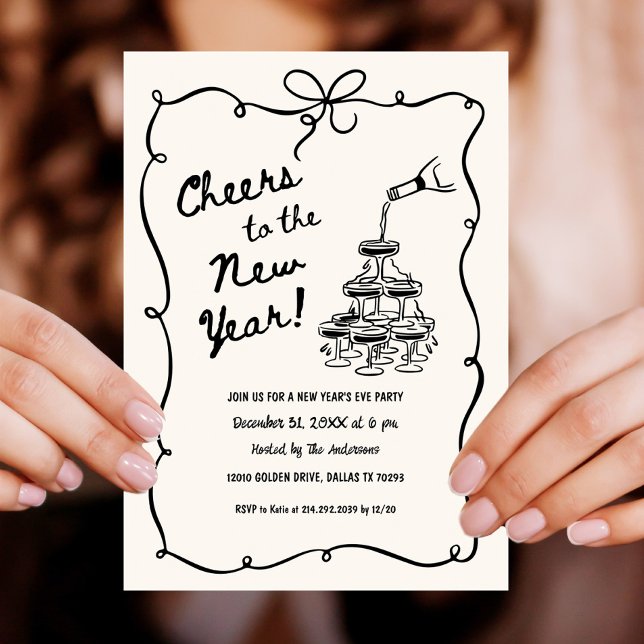 Cheers
to the
New
Year!
JOIN US FOR A NEW YEAR'S EVE PARTY
December 31, 20XX at 6 pm
Hosted by The Andersons
12010 GOLDEN DRIVE, DALLAS TX 70293
RSVP to Katie at 214.292.2039 by 12/20